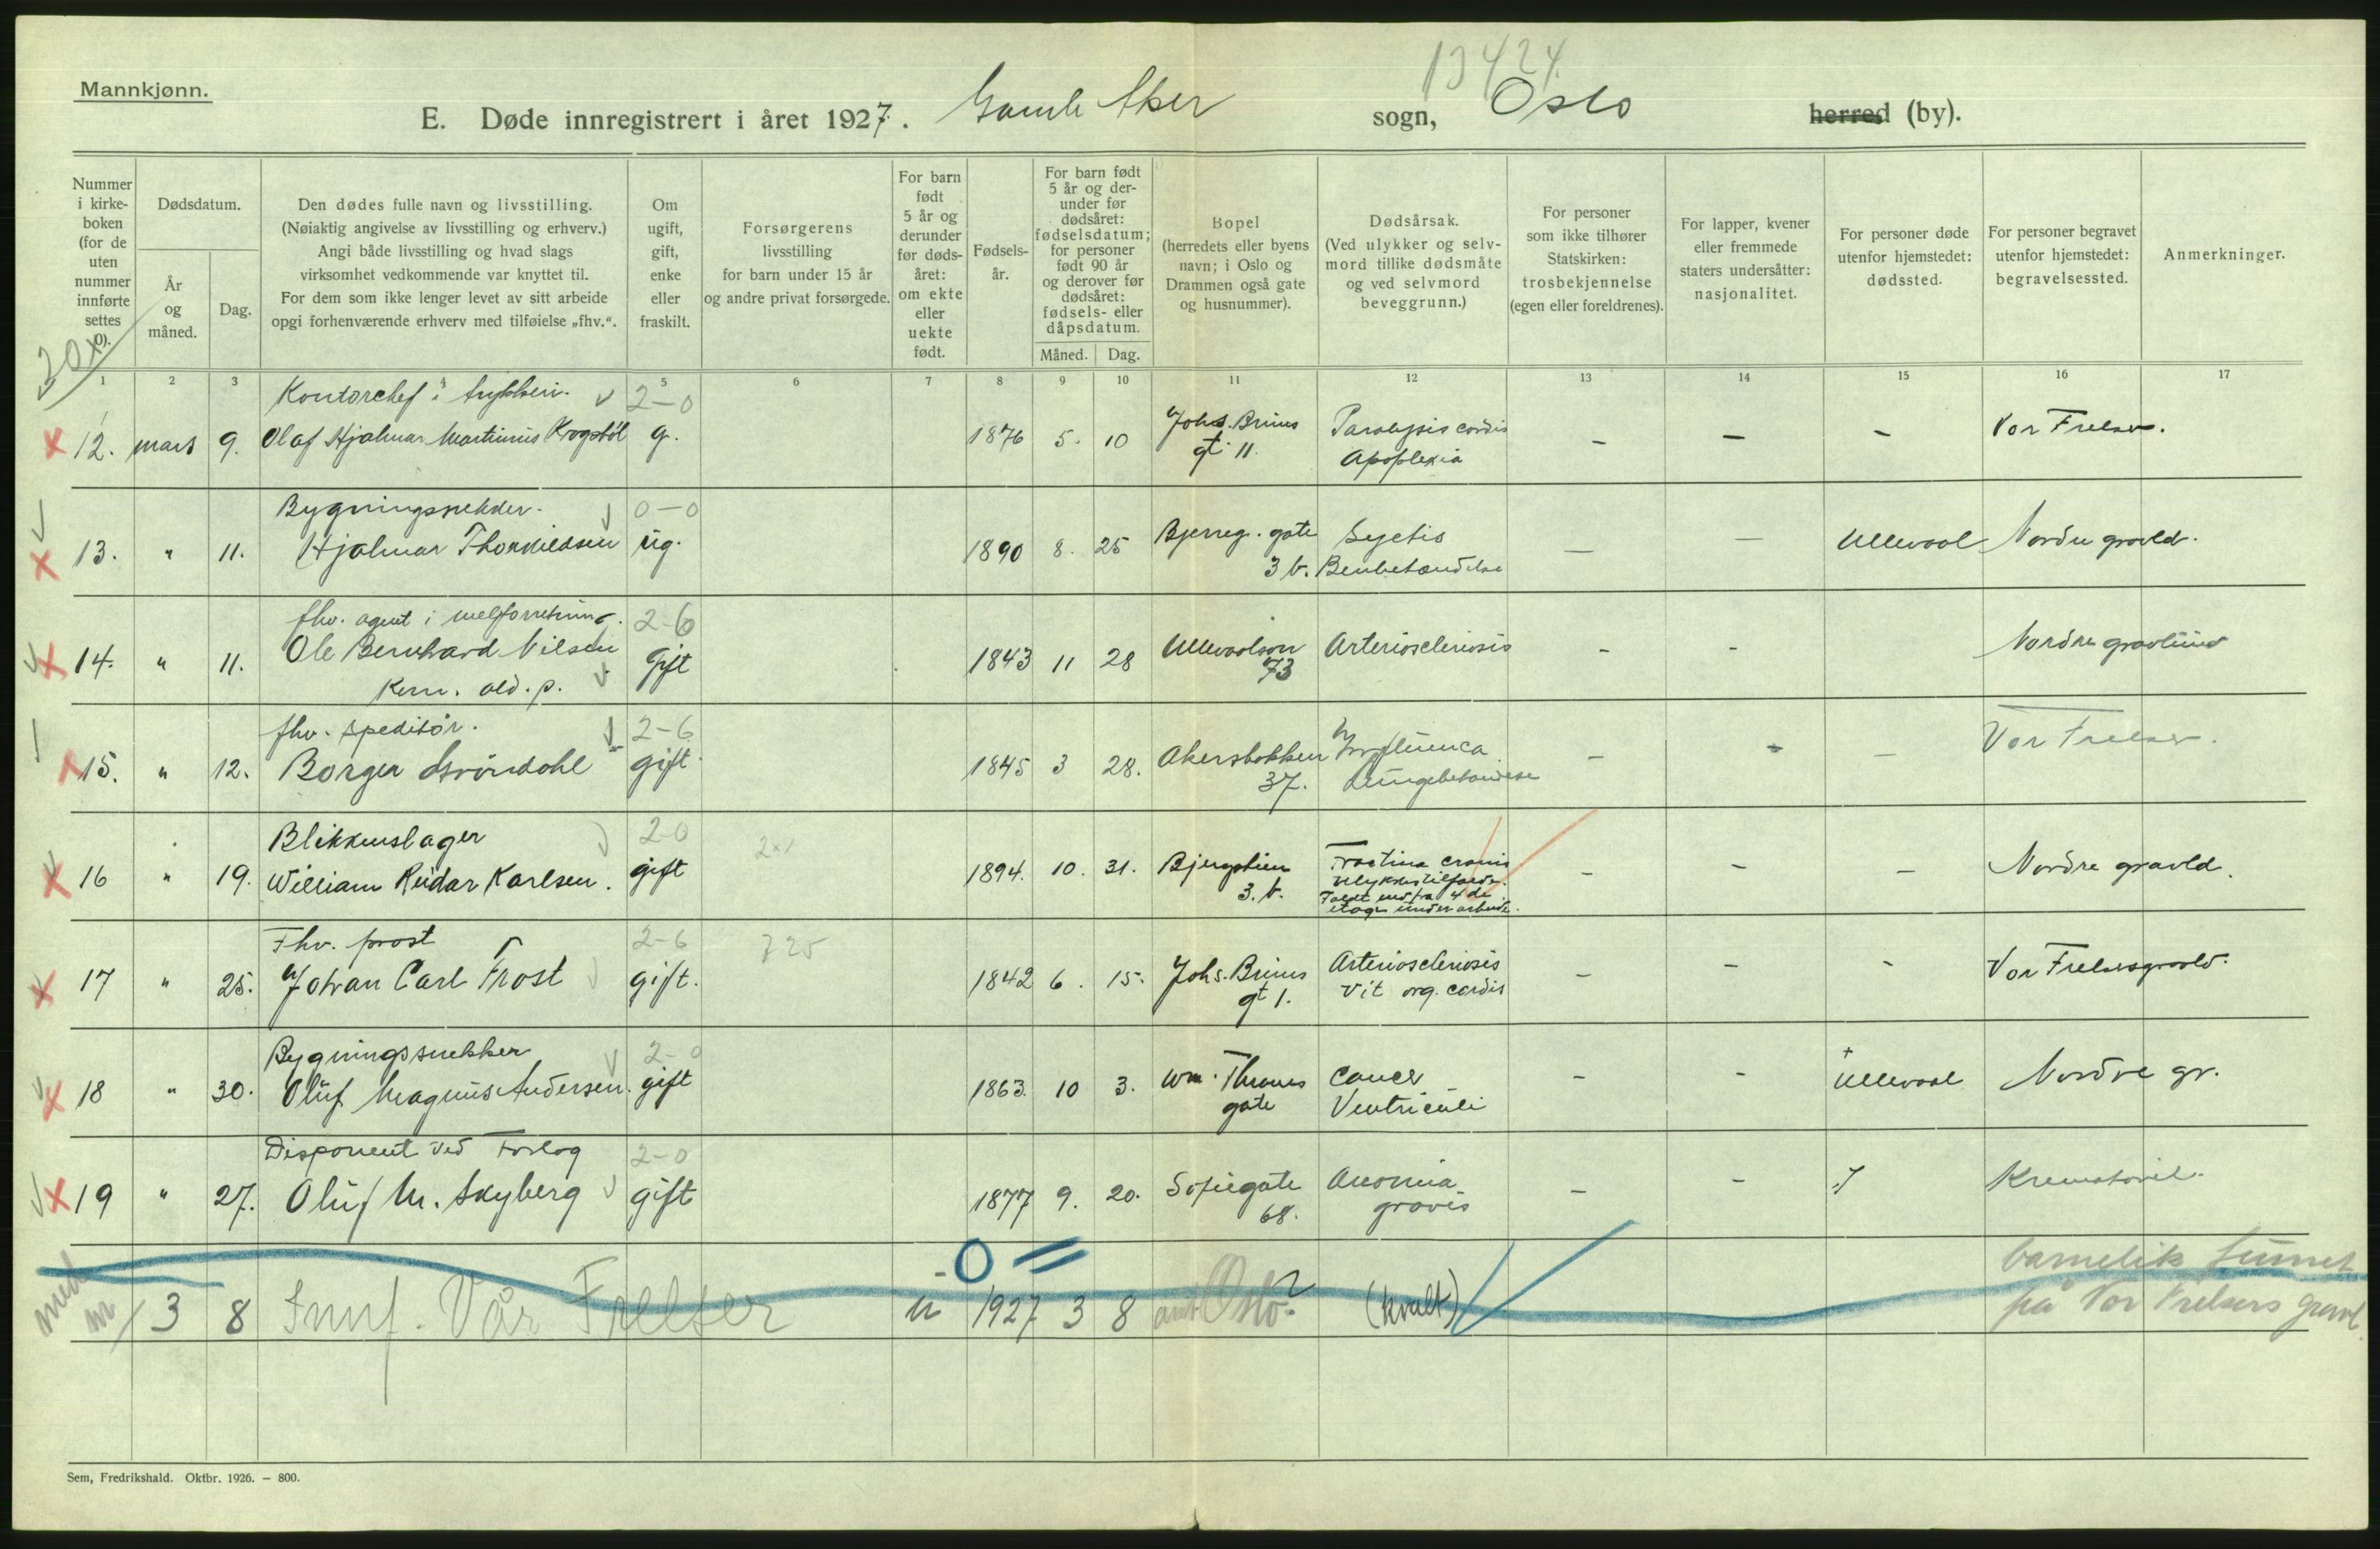 13424
Mannkjønn.
E. Døde innregistrert i året 1927. Gamle Aker sogn, Oslo herred (by).
Nummer i kirke-boken (for de uten nummer innførte settes 0).
Dødsdatum.
År og måned.
Dag.
Den dødes fulle navn og livsstilling.
(Nøiaktig angivelse av livsstilling og erhverv.)
Angi både livsstilling og hvad slags
virksomhet vedkommende var knyttet til.
For dem som ikke lenger levet av sitt arbeide
opgi forhenværende erhverv med tilføielse „fhv.“.
Om ugift, gift, enke eller fraskilt.
Forsørgerens
livsstilling
for barn under 15 år
og andre privat forsørgede.
For barn født 5 år og derunder før døds-året: om ekte eller uekte født.
Fødsels-år.
For barn født 5 år og der-under før dødsåret: fødselsdatum; for personer født 90 år og derover før dødsåret: fødsels- eller dåpsdatum.
Måned. Dag.
Bopel
(herredets eller byens
navn; i Oslo og
Drammen også gate
og husnummer).
Dødsårsak.
(Ved ulykker og selv-
mord tillike dødsmåte
og ved selvmord
beveggrunn.)
For personer
som ikke tilhører
Statskirken:
trosbekjennelse
(egen eller foreldrenes).
For lapper, kvener
eller fremmede
staters undersåtter:
nasjonalitet.
For personer døde
utenfor hjemstedet:
dødssted.
For personer begravet
utenfor hjemstedet:
begravelsessted.
Anmerkninger.
20x
1 2 3 4 5 6 7 8 9 10 11 12 13 14 15 16 17
Kontorchef i trykkeri. 2-0
12. mars 9. Olaf Hjalmar Martinius Krogsbøl g. 1876 5. 10 Johs. Bruns gt 11. Paralysis cordis Apoplexia - - - Vor Frelser.
Bygningssnekker. 0-0
13. " 11. Hjalmar Thorkildsen ug. 1890 8. 25 Bjerreg. gate 3 b. Benbetændelse - - Ullevaal Nordre gravld.
fhv. agent i melforretning. 2-6
14. " 11. Ole Bernhard Nilsen gift 1843 11 28 Ullevaalsvn 73 Arteriosclerosis - - Nordre gravlund
Kom. ald. p.
fhv. speditør. 2-6
15. " 12. Borger gift 1845 3 28. Akersbakken 37. Influenca Lungebetændelse - - - Vor Frelser.
Blikkenslager 2-0 2x1
16 " 19. William Reidar Karlsen. gift 1894. 10. 31. Bjergstien 3. b. Fractura cranii Ulykkestilfælde. Faldt ned fra 4de etage under arbeide. - - - Nordre gravld.
Fhv. prost 2-6 725
17 " 25. Johan Carl Frost gift. 1842 6. 15. Johs. Bruns gt 1. Arteriosclerosis Vit. org. cordis - - - Vor Frelsersgravld.
Bygningssnekker 2-0
18 " 30. Oluf Magnus Andersen. gift 1863. 10 3. Wm. Thranes gate Cancer Ventriculi - - Ullevaal Nordre gr.
Disponent ved Forlag 2-0
19 " 27. Oluf M. Skyberg gift 1877 9. 20. Sofiegate 68. Anæmia gravis - - Krematoriet.
0 =
med m 3 8 Innf. Vår Frelser u 1927 3 8 ant Oslo? (kvalt) barnelik funnet
på Vor Frelsers gravl.
Sem, Fredrikshald. Oktbr. 1926. — 800.